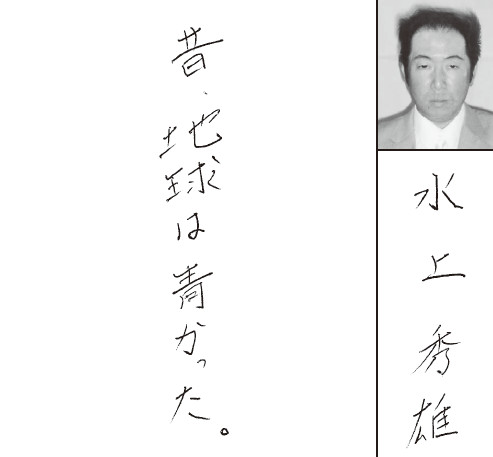 昔、地球は青かった。
水上秀雄